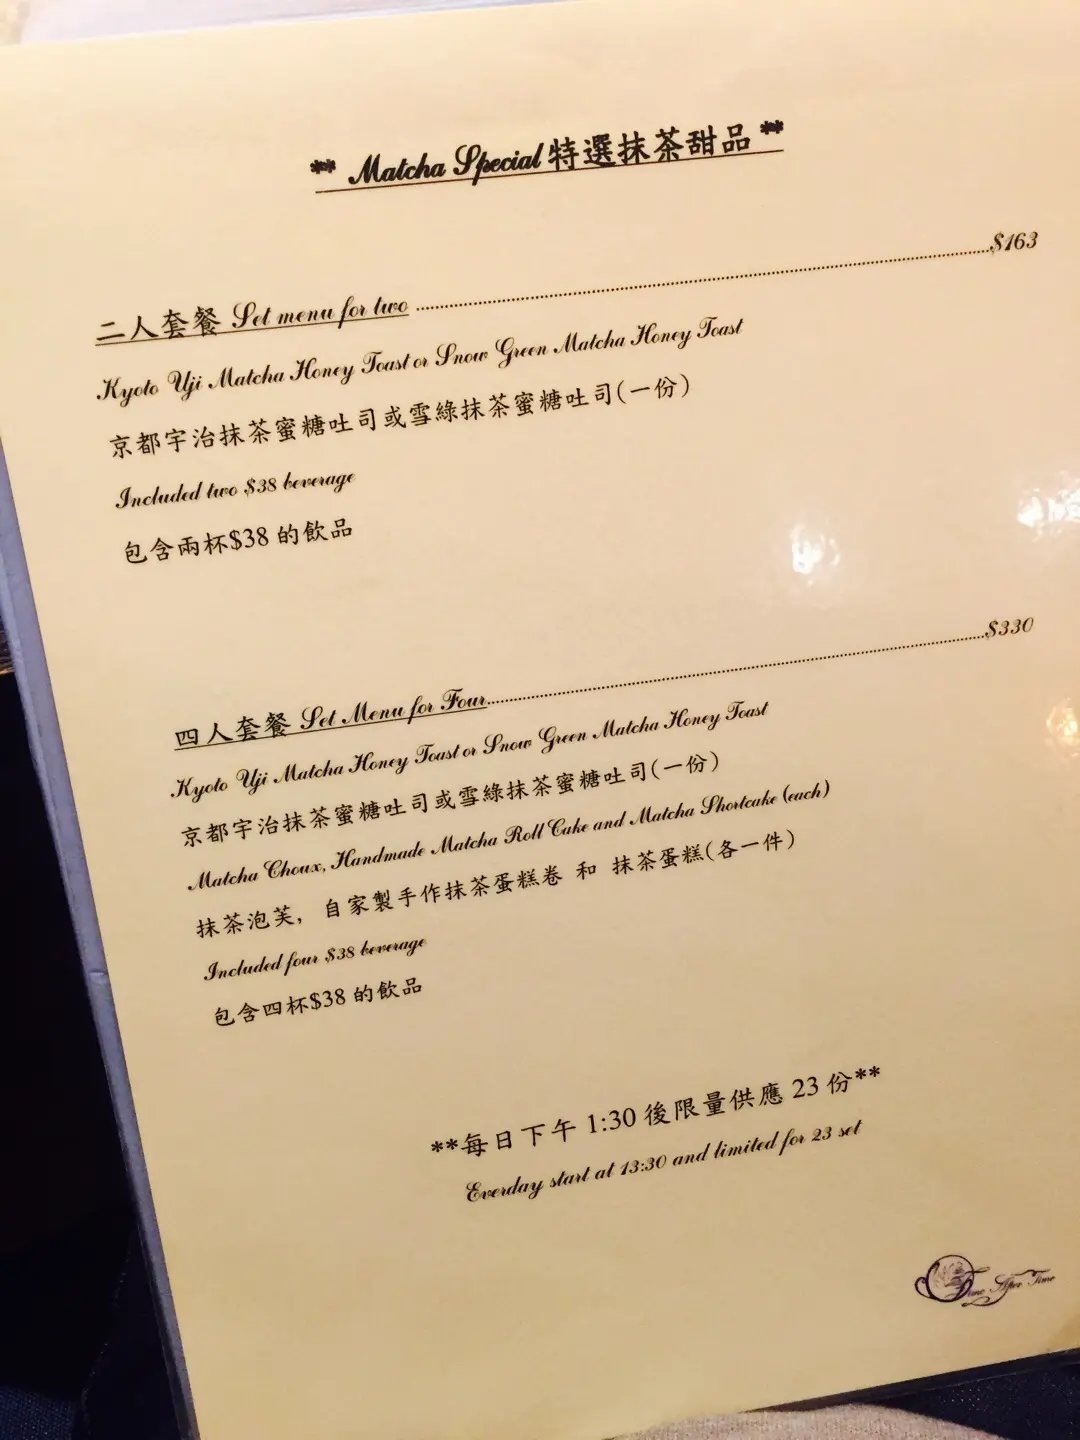 ** Matcha Special 特選抹茶甜品 **
二人套餐 Set menu for two ........................ $163
Kyoto Uji Matcha Honey Toast or Snow Green Matcha Honey Toast
京都宇治抹茶蜜糖吐司或雪綠抹茶蜜糖吐司(一份)
Included two $38 beverage
包含兩杯$38 的飲品
四人套餐 Set Menu for Four ........................ $330
Kyoto Uji Matcha Honey Toast or Snow Green Matcha Honey Toast
京都宇治抹茶蜜糖吐司或雪綠抹茶蜜糖吐司(一份)
Matcha Choux, Handmade Matcha Roll Cake and Matcha Shortcake (each)
抹茶泡芙, 自家製手作抹茶蛋糕卷 和 抹茶蛋糕(各一件)
Included four $38 beverage
包含四杯$38 的飲品
**每日下午 1:30 後限量供應 23 份**
Everday start at 13:30 and limited for 23 set
Time After Time